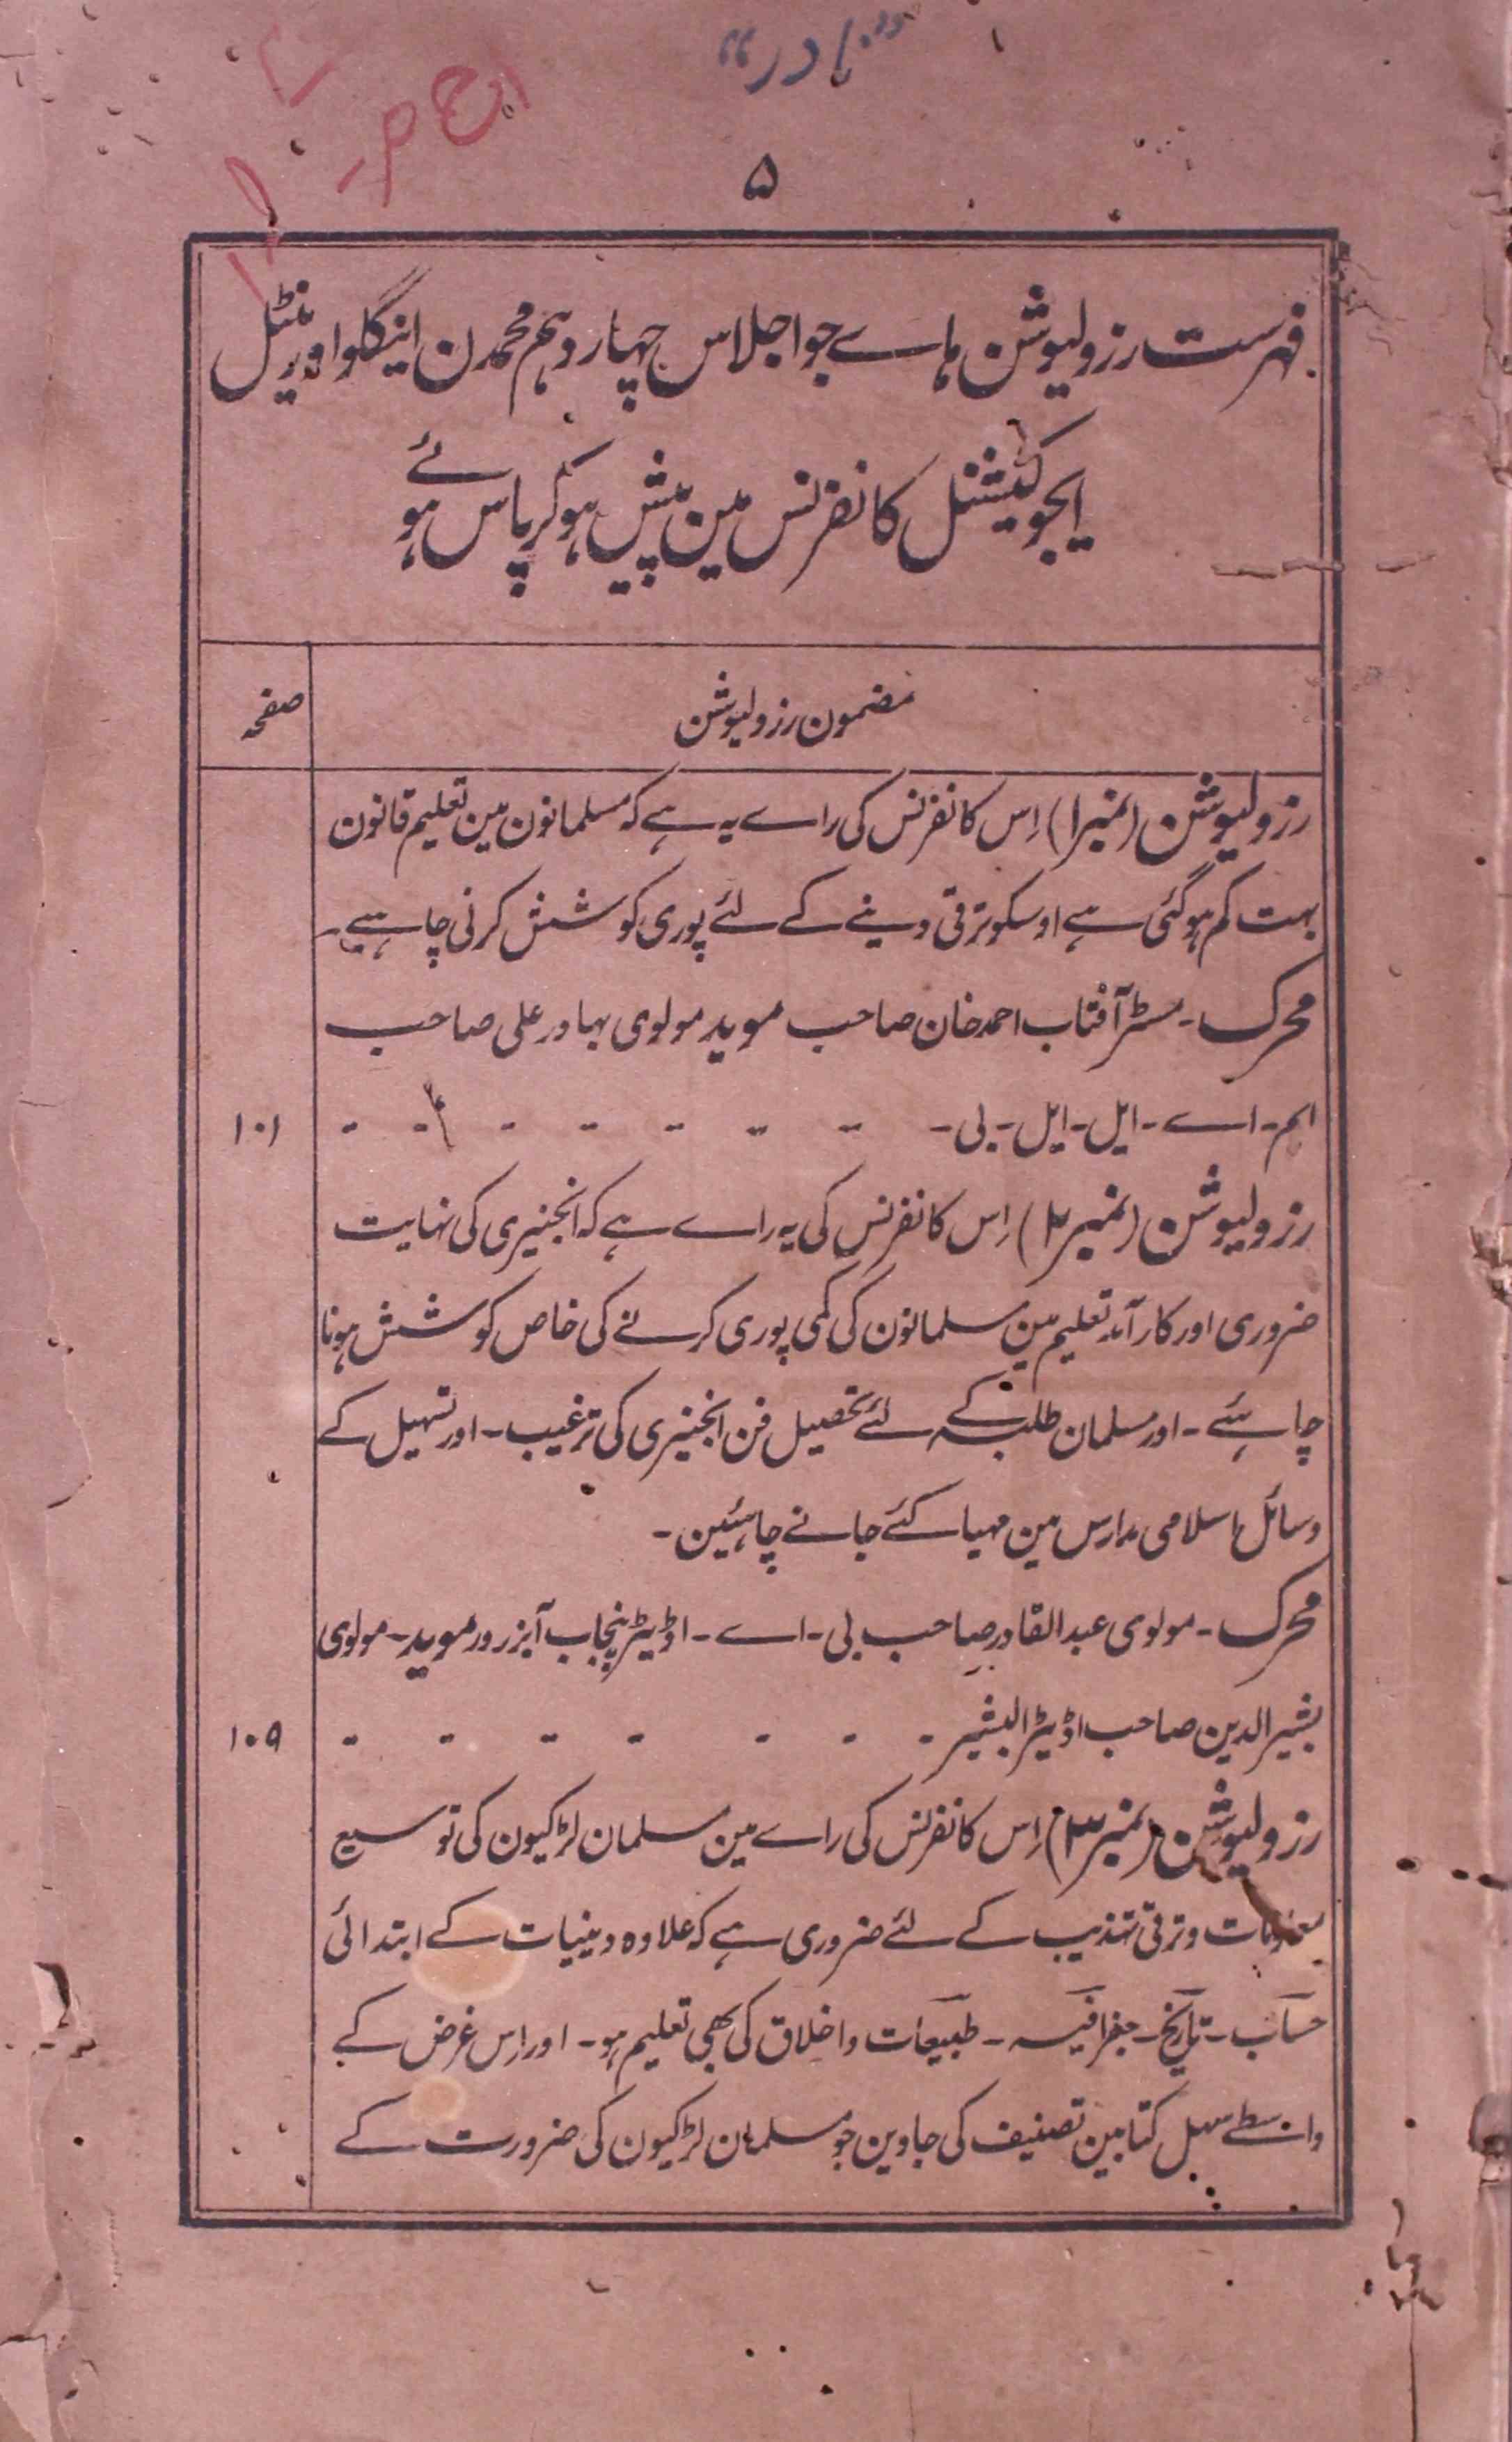 ”نادر“
۵
فہرست رزولیوشن ہاے جو اجلاس چہاردہم محمدن اینگلو اورینٹل
ایجوکیشنل کانفرنس مین پیش ہو کر پاس ہوئے
مضمون رزولیوشن
صفحہ
رزولیوشن (نمبر۱) اِس کانفرنس کی راے یہ ہے کہ مسلمانون مین تعلیم قانون
بہت کم ہوگئی ہے اوسکو ترقی دینے کے لئے پوری کوشش کرنی چاہیے۔
محرک۔ مسٹر آفتاب احمد خان صاحب موید مولوی بہادر علی صاحب
ایم۔ اے۔ ایل۔ ایل۔ بی۔ - - - - - - - ۱۰۱
رزولیوشن (نمبر۲) اِس کانفرنس کی یہ راے ہے کہ انجنیری کی نہایت
ضروری اور کارآمد تعلیم مین مسلمانون کی کمی پوری کرنے کی خاص کوشش ہونا
چاہئے۔ اور مسلمان طلبہ کے لئے تحصیل فن انجنیری کی ترغیب۔ اور تسہیل کے
وسائل اسلامی مدارس مین مہیا کئے جانے چاہئین۔
محرک۔ مولوی عبدالقادر صاحب بی۔ اے۔ اڈیٹر پنجاب آبزرور موید۔ مولوی
بشیرالدین صاحب اڈیٹر البشیر - - - - - - - ۱۰۹
رزولیوشن (نمبر۳) اِس کانفرنس کی راے مین مسلمان لڑکیون کی توسیع
معلومات و ترقی تہذیب کے لئے ضروری ہے کہ علاوہ دینیات کے ابتدائی
حساب۔ تاریخ۔ جغرافیہ۔ طبیعات و اخلاق کی بھی تعلیم ہو۔ اور اِس غرض کے
واسطے سہل کتابین تصنیف کی جاوین جو مسلمان لڑکیون کی ضرورت کے